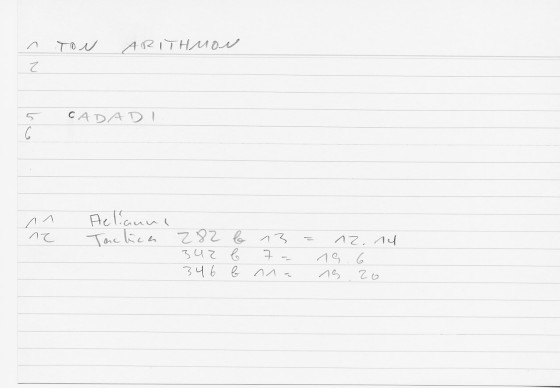 1 TON ARITHMON
2
5 CADADI
6
11 Aelianus
12 Tactica 282 b 13 = 12.14
342 b 7 = 19 6
346 b 11 = 19.20